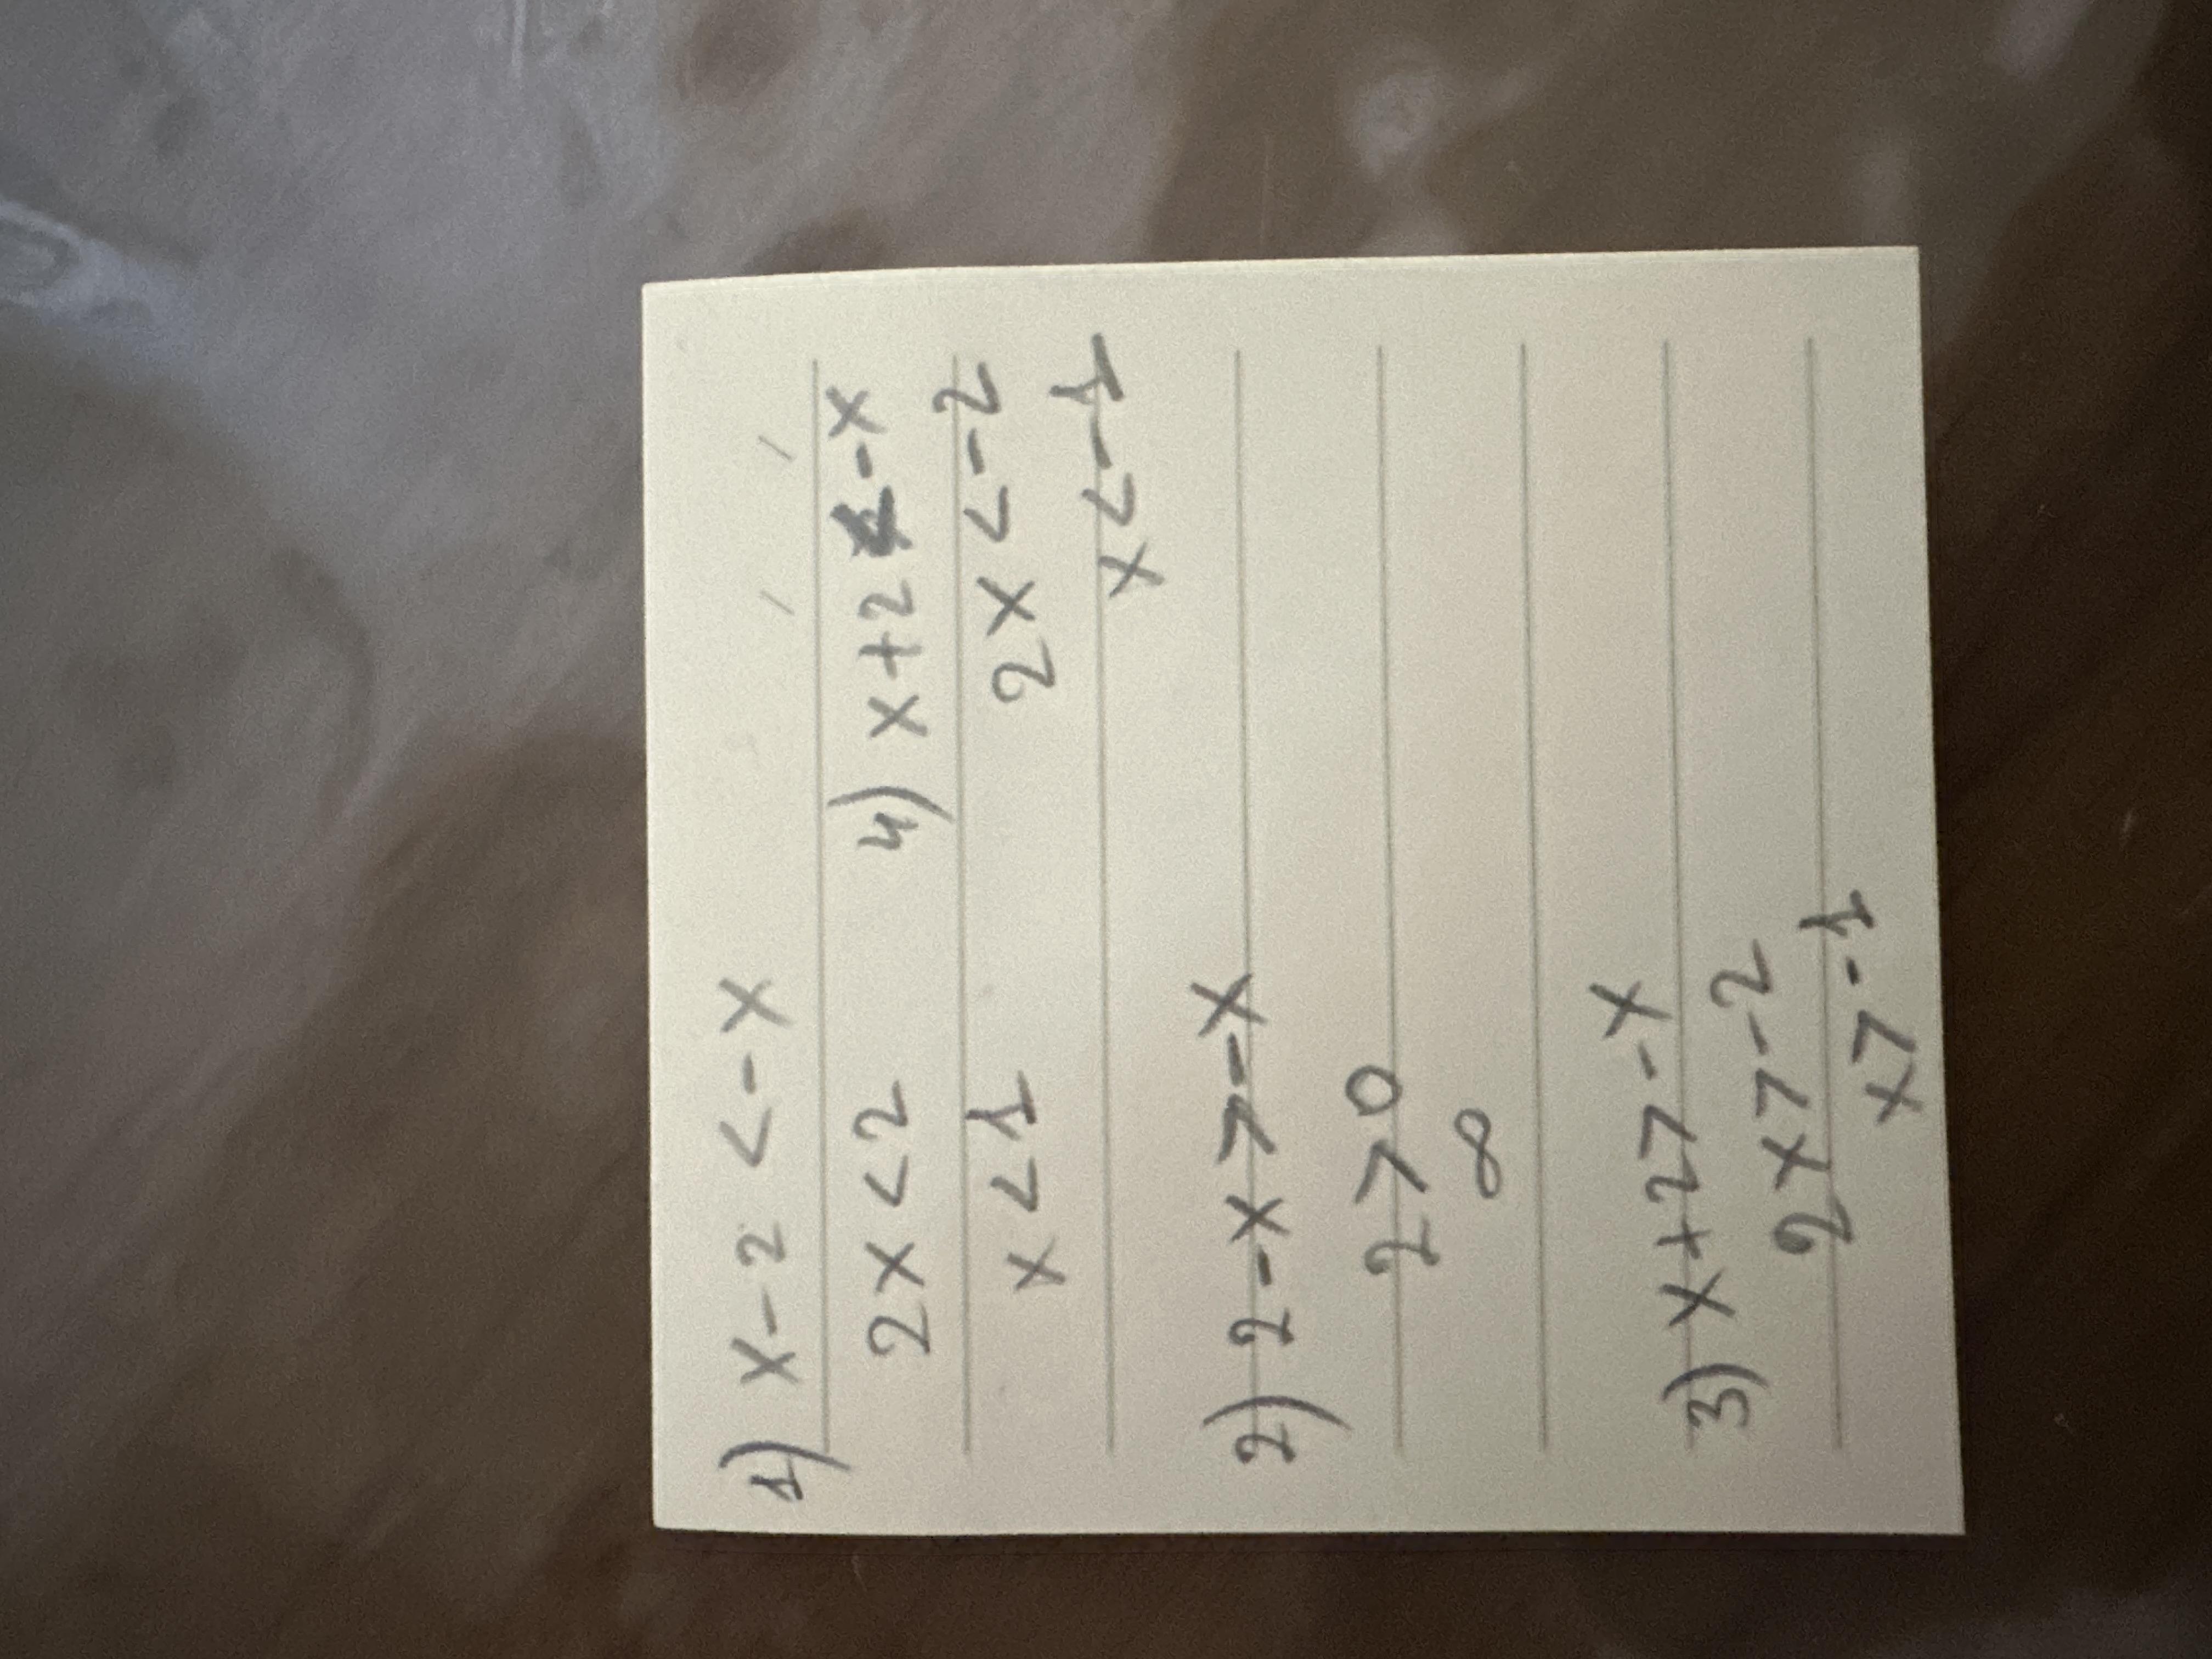 1) x-2 <-x
2x<2
x<1
2) 2-x>-x
2>0
∞
3) x+2>-x
2x>-2
x>-1
4) x+2<-x
2x<-2
x<-1